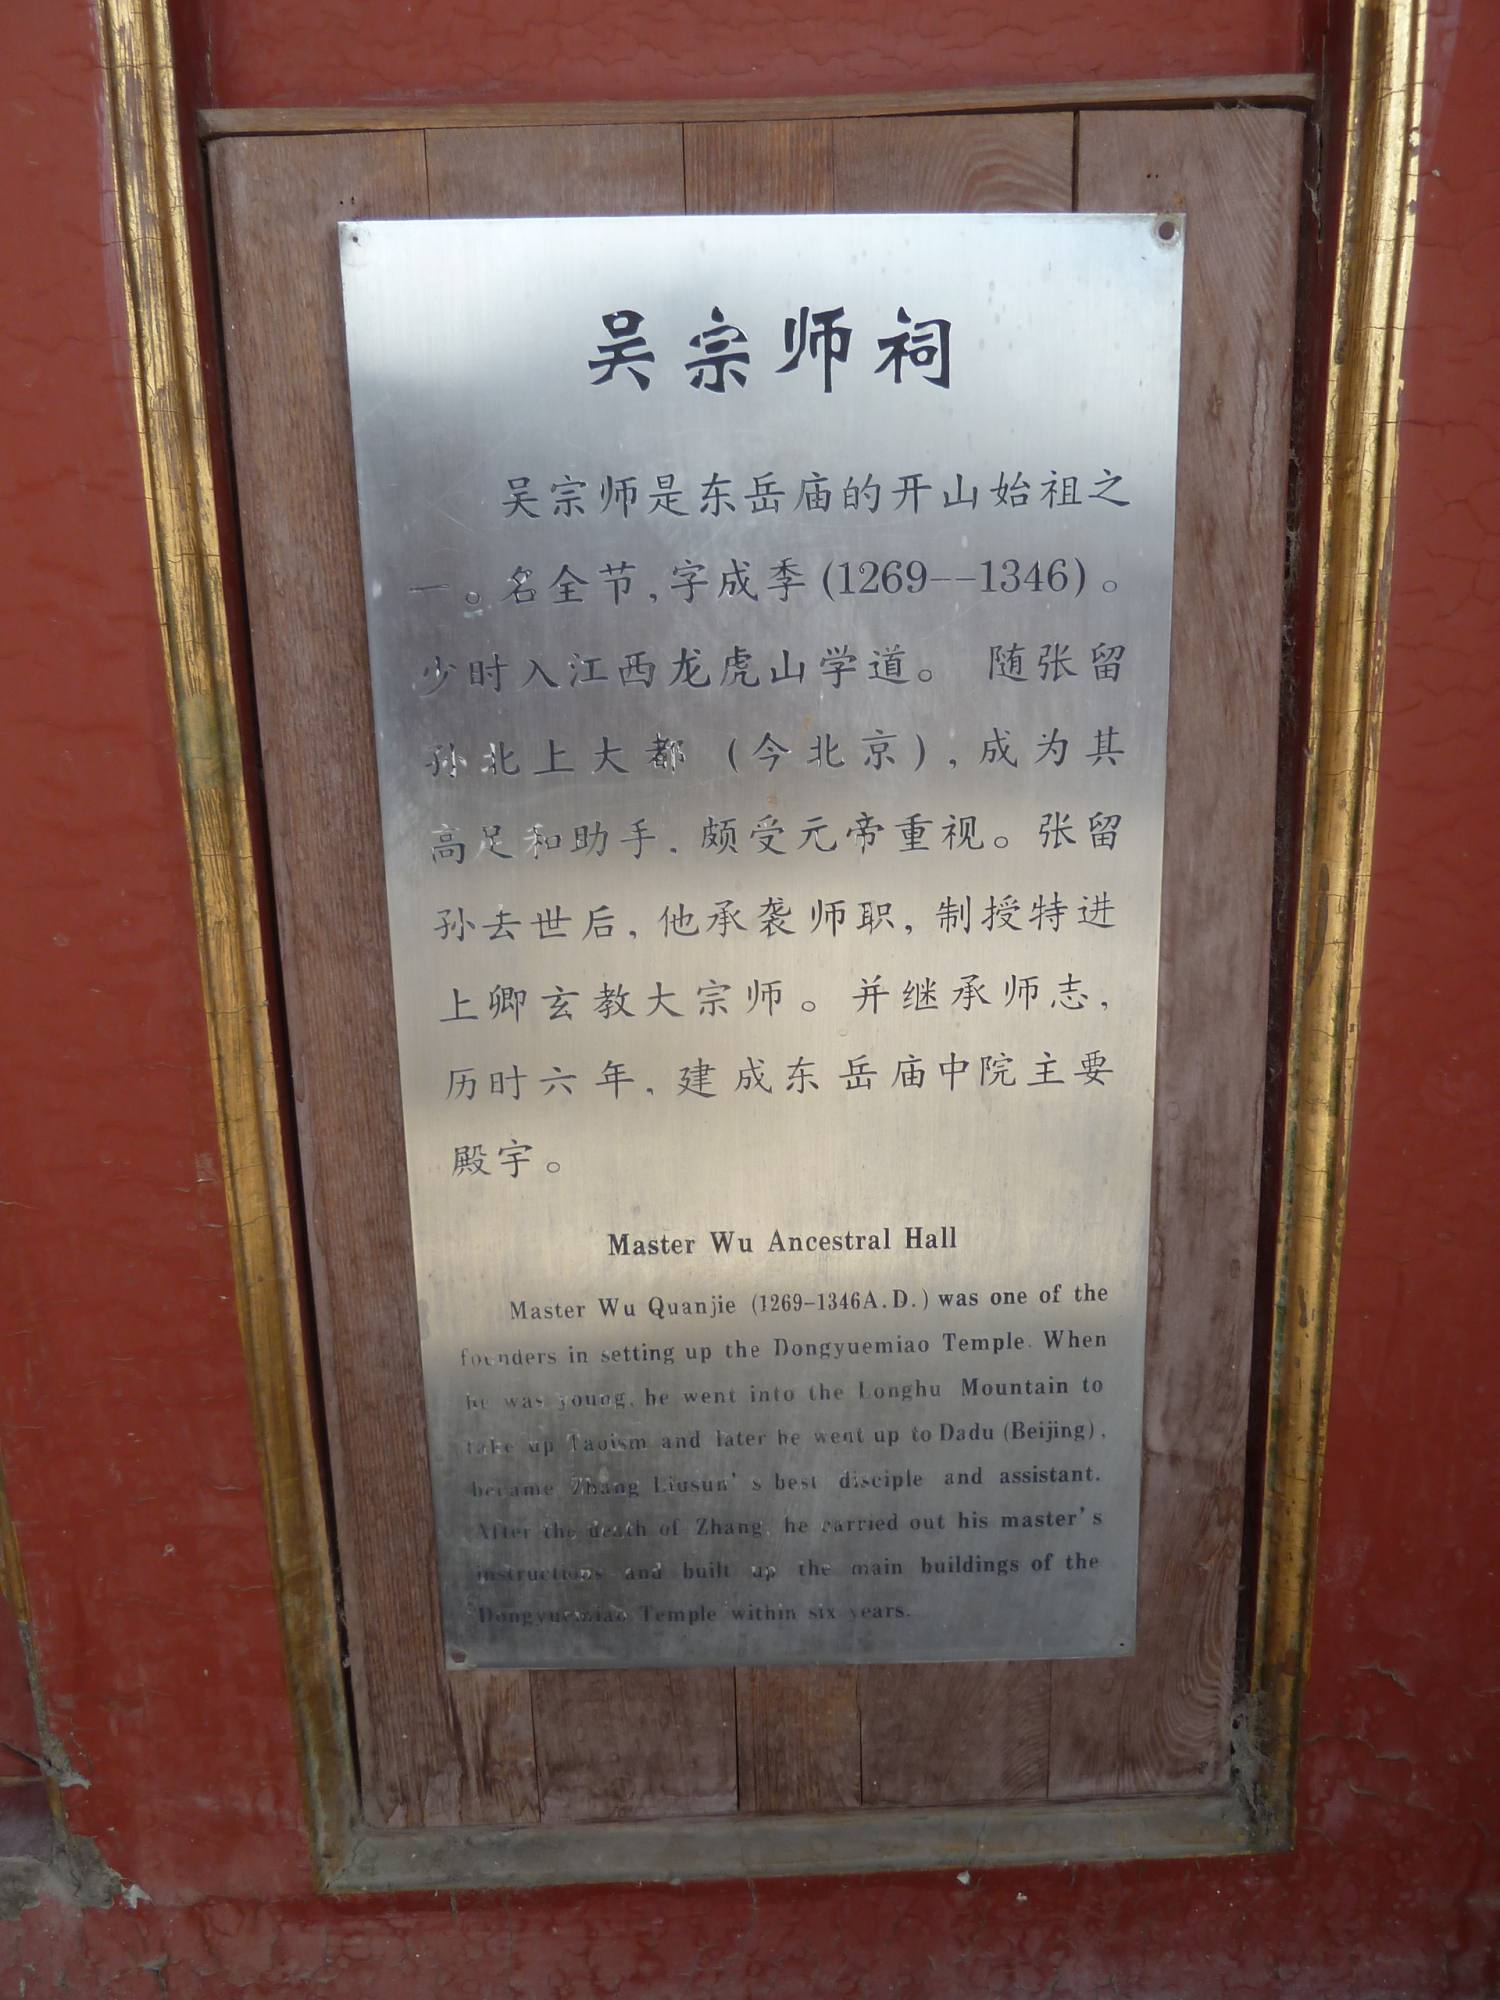 吴宗师祠
吴宗师是东岳庙的开山始祖之
一。名全节,字成季(1269--1346)。
少时入江西龙虎山学道。 随张留
孙北上大都 (今北京),成为其
高足和助手,颇受元帝重视。张留
孙去世后,他承袭师职,制授特进
上卿玄教大宗师。并继承师志,
历时六年,建成东岳庙中院主要
殿宇。
Master Wu Ancestral Hall
Master Wu Quanjie (1269-1346A.D.) was one of the
founders in setting up the Dongyuemiao Temple. When
he was young, he went into the Longhu Mountain to
take up Taoism and later he went up to Dadu (Beijing),
became Zhang Liusun's best disciple and assistant.
After the death of Zhang, he carried out his master's
instructions and built up the main buildings of the
Dongyuemiao Temple within six years.